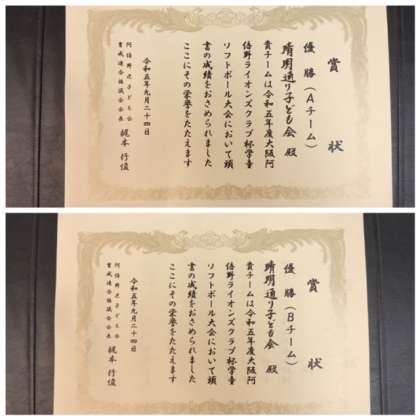 賞状
優勝（Aチーム）
晴明通り子ども会 殿
貴チームは令和五年度大阪阿
倍野ライオンズクラブ杯学童
ソフトボール大会において頭
書の成績をおさめられました
ここにその栄誉をたたえます
令和五年九月二十四日
阿倍野区子ども会
育成連合協議会会長 梶本行俊
賞状
優勝（Bチーム）
晴明通り子ども会 殿
貴チームは令和五年度大阪阿
倍野ライオンズクラブ杯学童
ソフトボール大会において頭
書の成績をおさめられました
ここにその栄誉をたたえます
令和五年九月二十四日
阿倍野区子ども会
育成連合協議会会長 梶本行俊